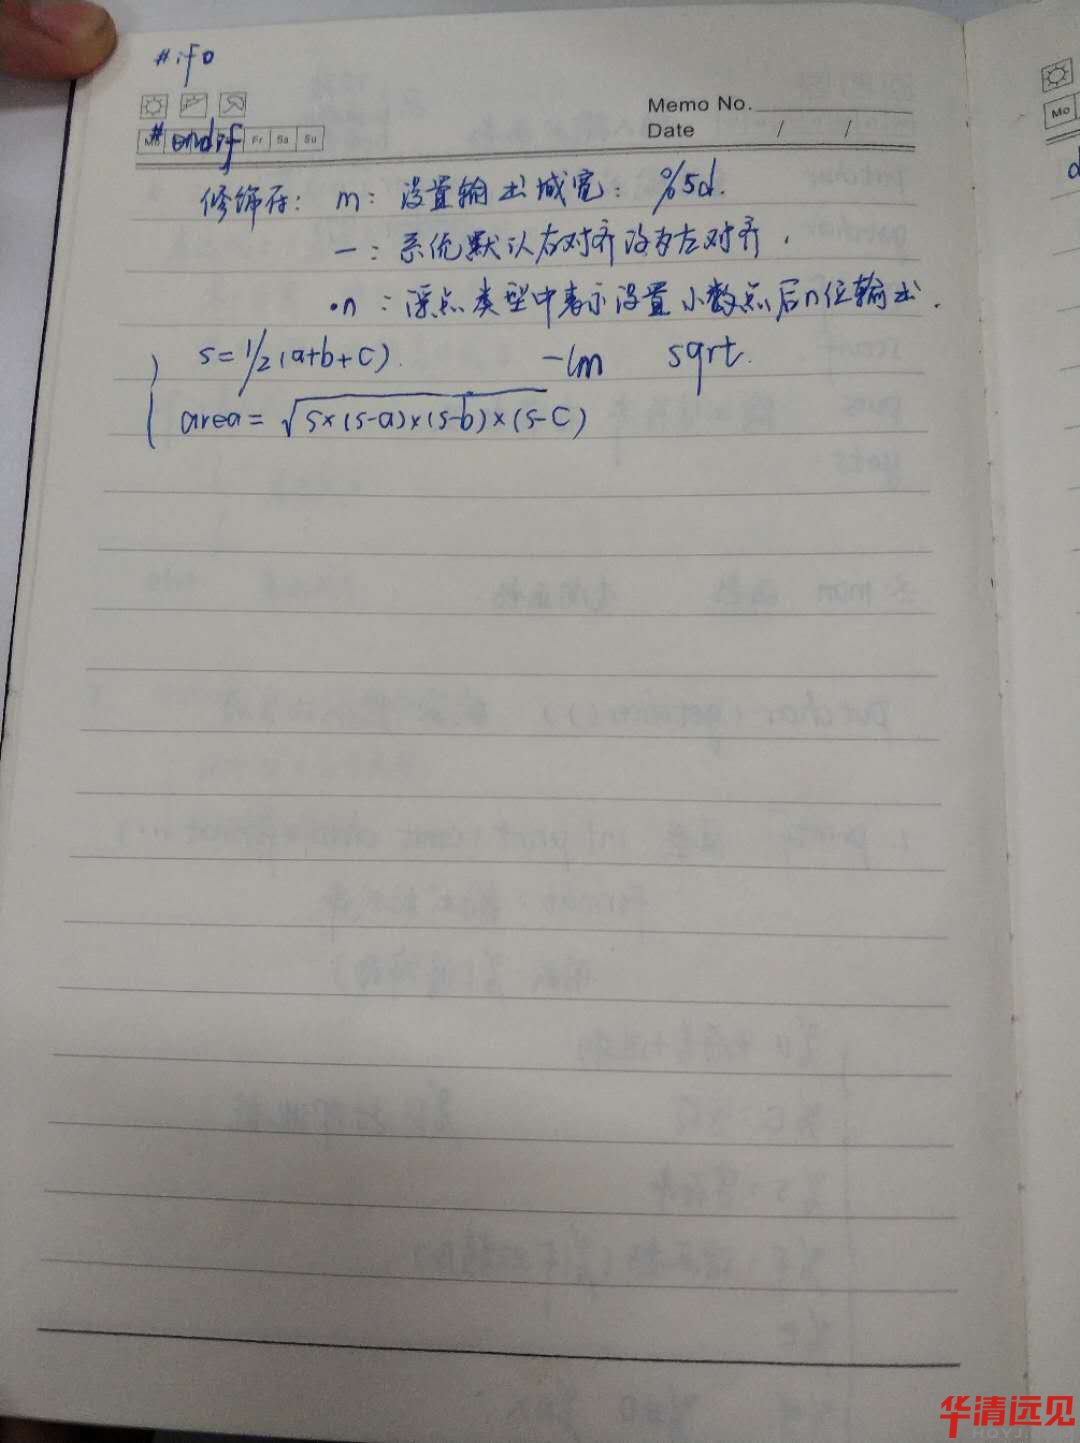 #if 0
Memo No.
Date / /
#endif Fr Sa Su
修饰符: m: 设置输出域宽: %5d.
一: 系统默认右对齐改为左对齐.
.n: 浮点类型中表示设置小数点后n位输出.
s=1/2(a+b+c). -lm sqrt.
area=√s×(s-a)×(s-b)×(s-c)
Mo
华清远见
HQYJ.COM